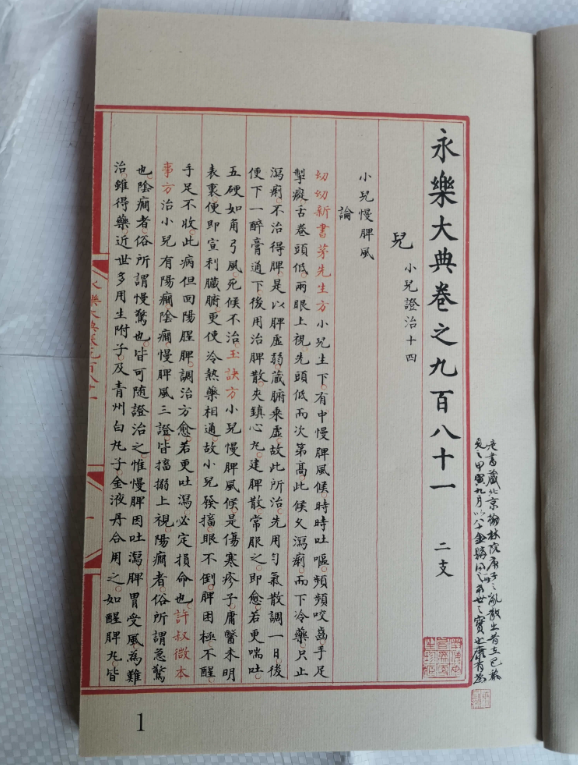 是書藏北京翰林院庚子之亂散出
甲寅九月以
世之寶也康有為
永樂大典卷之九百八十一 二支
兒 小兒證治十四
小兒慢脾風
論
幼幼新書茅先生方小兒生下有中慢脾風候時時吐嘔頻頻咬齒手足
掣瘲舌卷頭低兩眼上視先頭低而次第高此候久瀉痢而下冷藥只止
瀉痢不治得脾是以脾虛弱藏腑乘虛故此所治先用勻氣散調一日後
便下一醉膏通下後用治脾散夾鎮心丸建脾散常服之即愈若更喘吐
五硬如角弓風死候不治玉訣方小兒慢脾風候是傷寒疹子庸醫未明
表裏便即宣利臟腑更使冷熱藥相通故小兒發搐眼不倒脾困極不醒
手足不收此病但回陽醒脾調治方愈若更吐瀉必定損命也許叔微本
事方治小兒有陽癇陰癇慢脾風三證皆搐搦上視陽癇者俗所謂急驚
也陰癇者俗所謂慢驚也皆可隨證治之惟慢脾因吐瀉脾胃受風為難
治雖得藥近世多用生附子及青州白丸子金液丹合用之如醒脾丸皆
永樂大典卷九百八十一
一
1